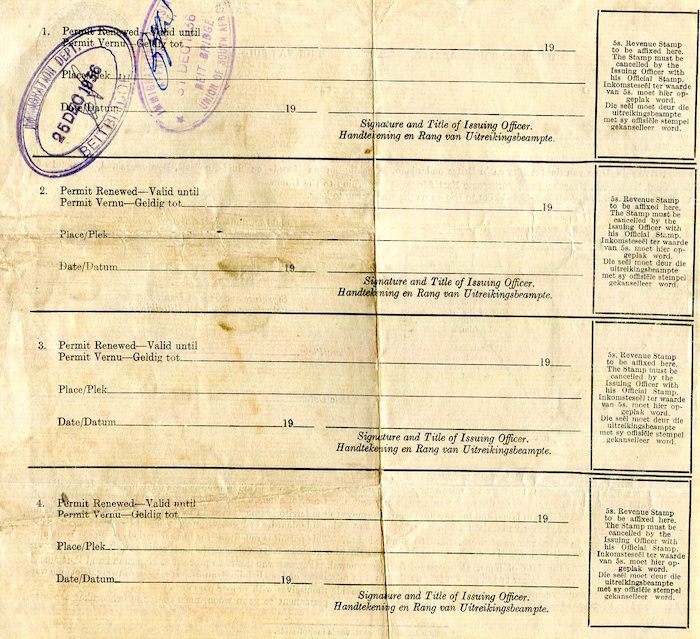 1. Permit Renewed—Valid until
Permit Vernu—Geldig tot 19
Place/Plek
Date/Datum 19
Signature and Title of Issuing Officer.
Handtekening en Rang van Uitreikingsbeampte.
5s. Revenue Stamp
to be affixed here.
The Stamp must be
cancelled by the
Issuing Officer with
his Official Stamp.
Inkomsteseël ter waarde
van 5s. moet hier op-
geplak word.
Die seël moet deur die
uitreikingsbeampte
met sy offisiële stempel
gekanselleer word.
IMMIGRATION DEPT.
25 DEC 1956
BEIT BRIDGE
DEC 1956
BEIT BRIDGE
UNION OF SOUTH AFRICA
2. Permit Renewed—Valid until
Permit Vernu—Geldig tot 19
Place/Plek
Date/Datum 19
Signature and Title of Issuing Officer.
Handtekening en Rang van Uitreikingsbeampte.
5s. Revenue Stamp
to be affixed here.
The Stamp must be
cancelled by the
Issuing Officer with
his Official Stamp.
Inkomsteseël ter waarde
van 5s. moet hier op-
geplak word.
Die seël moet deur die
uitreikingsbeampte
met sy offisiële stempel
gekanselleer word.
3. Permit Renewed—Valid until
Permit Vernu—Geldig tot 19
Place/Plek
Date/Datum 19
Signature and Title of Issuing Officer.
Handtekening en Rang van Uitreikingsbeampte.
5s. Revenue Stamp
to be affixed here.
The Stamp must be
cancelled by the
Issuing Officer with
his Official Stamp.
Inkomsteseël ter waarde
van 5s. moet hier op-
geplak word.
Die seël moet deur die
uitreikingsbeampte
met sy offisiële stempel
gekanselleer word.
4. Permit Renewed—Valid until
Permit Vernu—Geldig tot 19
Place/Plek
Date/Datum 19
Signature and Title of Issuing Officer.
Handtekening en Rang van Uitreikingsbeampte.
5s. Revenue Stamp
to be affixed here.
The Stamp must be
cancelled by the
Issuing Officer with
his Official Stamp.
Inkomsteseël ter waarde
van 5s. moet hier op-
geplak word.
Die seël moet deur die
uitreikingsbeampte
met sy offisiële stempel
gekanselleer word.